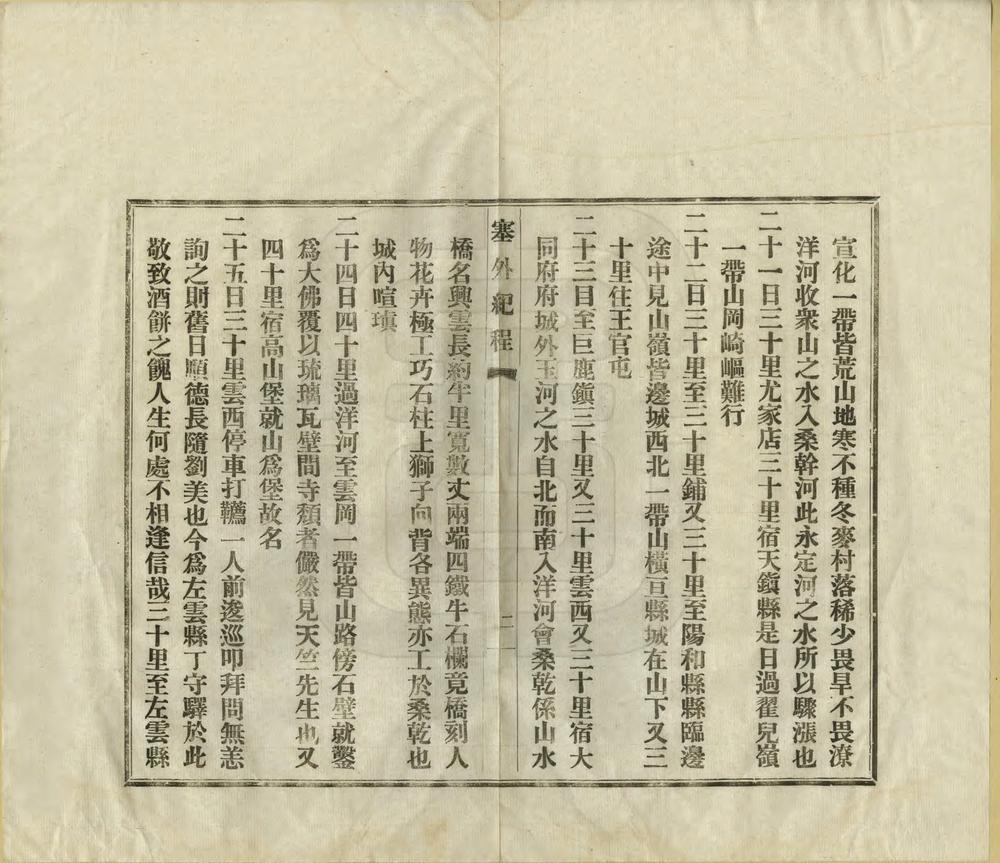 宣化一帶皆荒山地寒不種冬麥村落稀少畏旱不畏潦
洋河收衆山之水入桑幹河此永定河之水所以驟漲也
二十一日三十里尤家店三十里宿天鎭縣是日過翟兒嶺
一帶山岡崎嶇難行
二十二日三十里至三十里鋪又三十里至陽和縣縣臨邊
途中見山嶺皆邊城西北一帶山橫亘縣城在山下又三
十里住王官屯
二十三目至巨鹿鎭三十里又三十里雲西又三十里宿大
同府府城外玉河之水自北而南入洋河會桑乾係山水
塞外紀程
二
橋名興雲長約半里寬數丈兩端四鐵牛石欄竟橋刻人
物花卉極工巧石柱上獅子向背各異態亦工於桑乾也
城內喧瑱
二十四日四十里過洋河至雲岡一帶皆山路傍石壁就鑿
爲大佛覆以琉璃瓦壁間寺頹者儼然見天竺先生也又
四十里宿高山堡就山爲堡故名
二十五日三十里雲西停車打韉一人前逡巡叩拜問無恙
詢之則舊日順德長隨劉美也今爲左雲縣丁守驛於此
敬致酒餅之餽人生何處不相逢信哉三十里至左雲縣